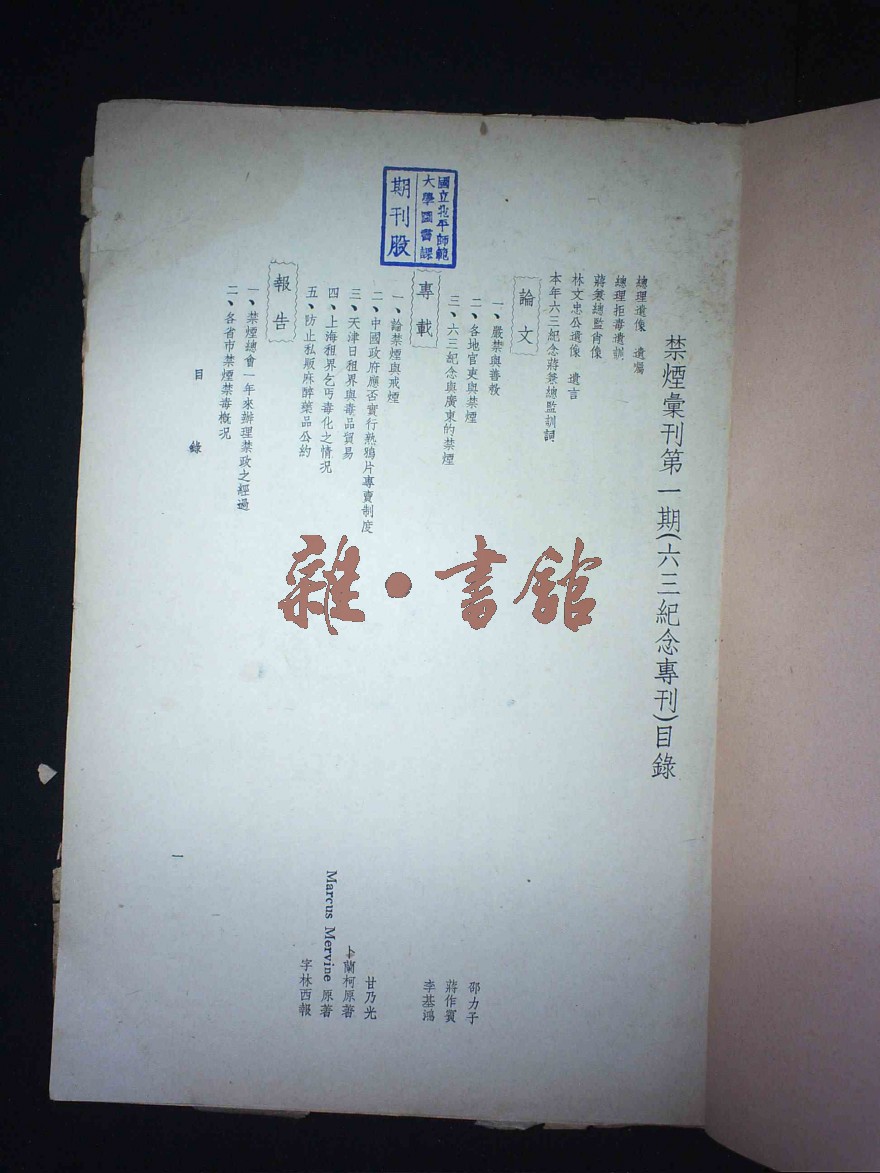 禁煙彙刊第一期(六三紀念專刊)目錄
總理遺像 遺囑
總理拒毒遺訓
蔣兼總監肖像
林文忠公遺像 遺言
本年六三紀念蔣兼總監訓詞
論文
一、嚴禁與善救 邵力子
二、各地官吏與禁煙 蔣作賓
三、六三紀念與廣東的禁煙 李基鴻
專載
一、論禁煙與戒煙 甘乃光
二、中國政府應否實行熟鴉片專賣制度 卜蘭柯原著
三、天津日租界與毒品貿易 Marcus Mervine 原著
四、上海租界乞丐毒化之情況 字林西報
五、防止私販麻醉藥品公約
報告
一、禁煙總會一年來辦理禁政之經過
二、各省市禁煙禁毒概況
目錄
一
國立北平師範
大學圖書課
期刊股
雜·書館